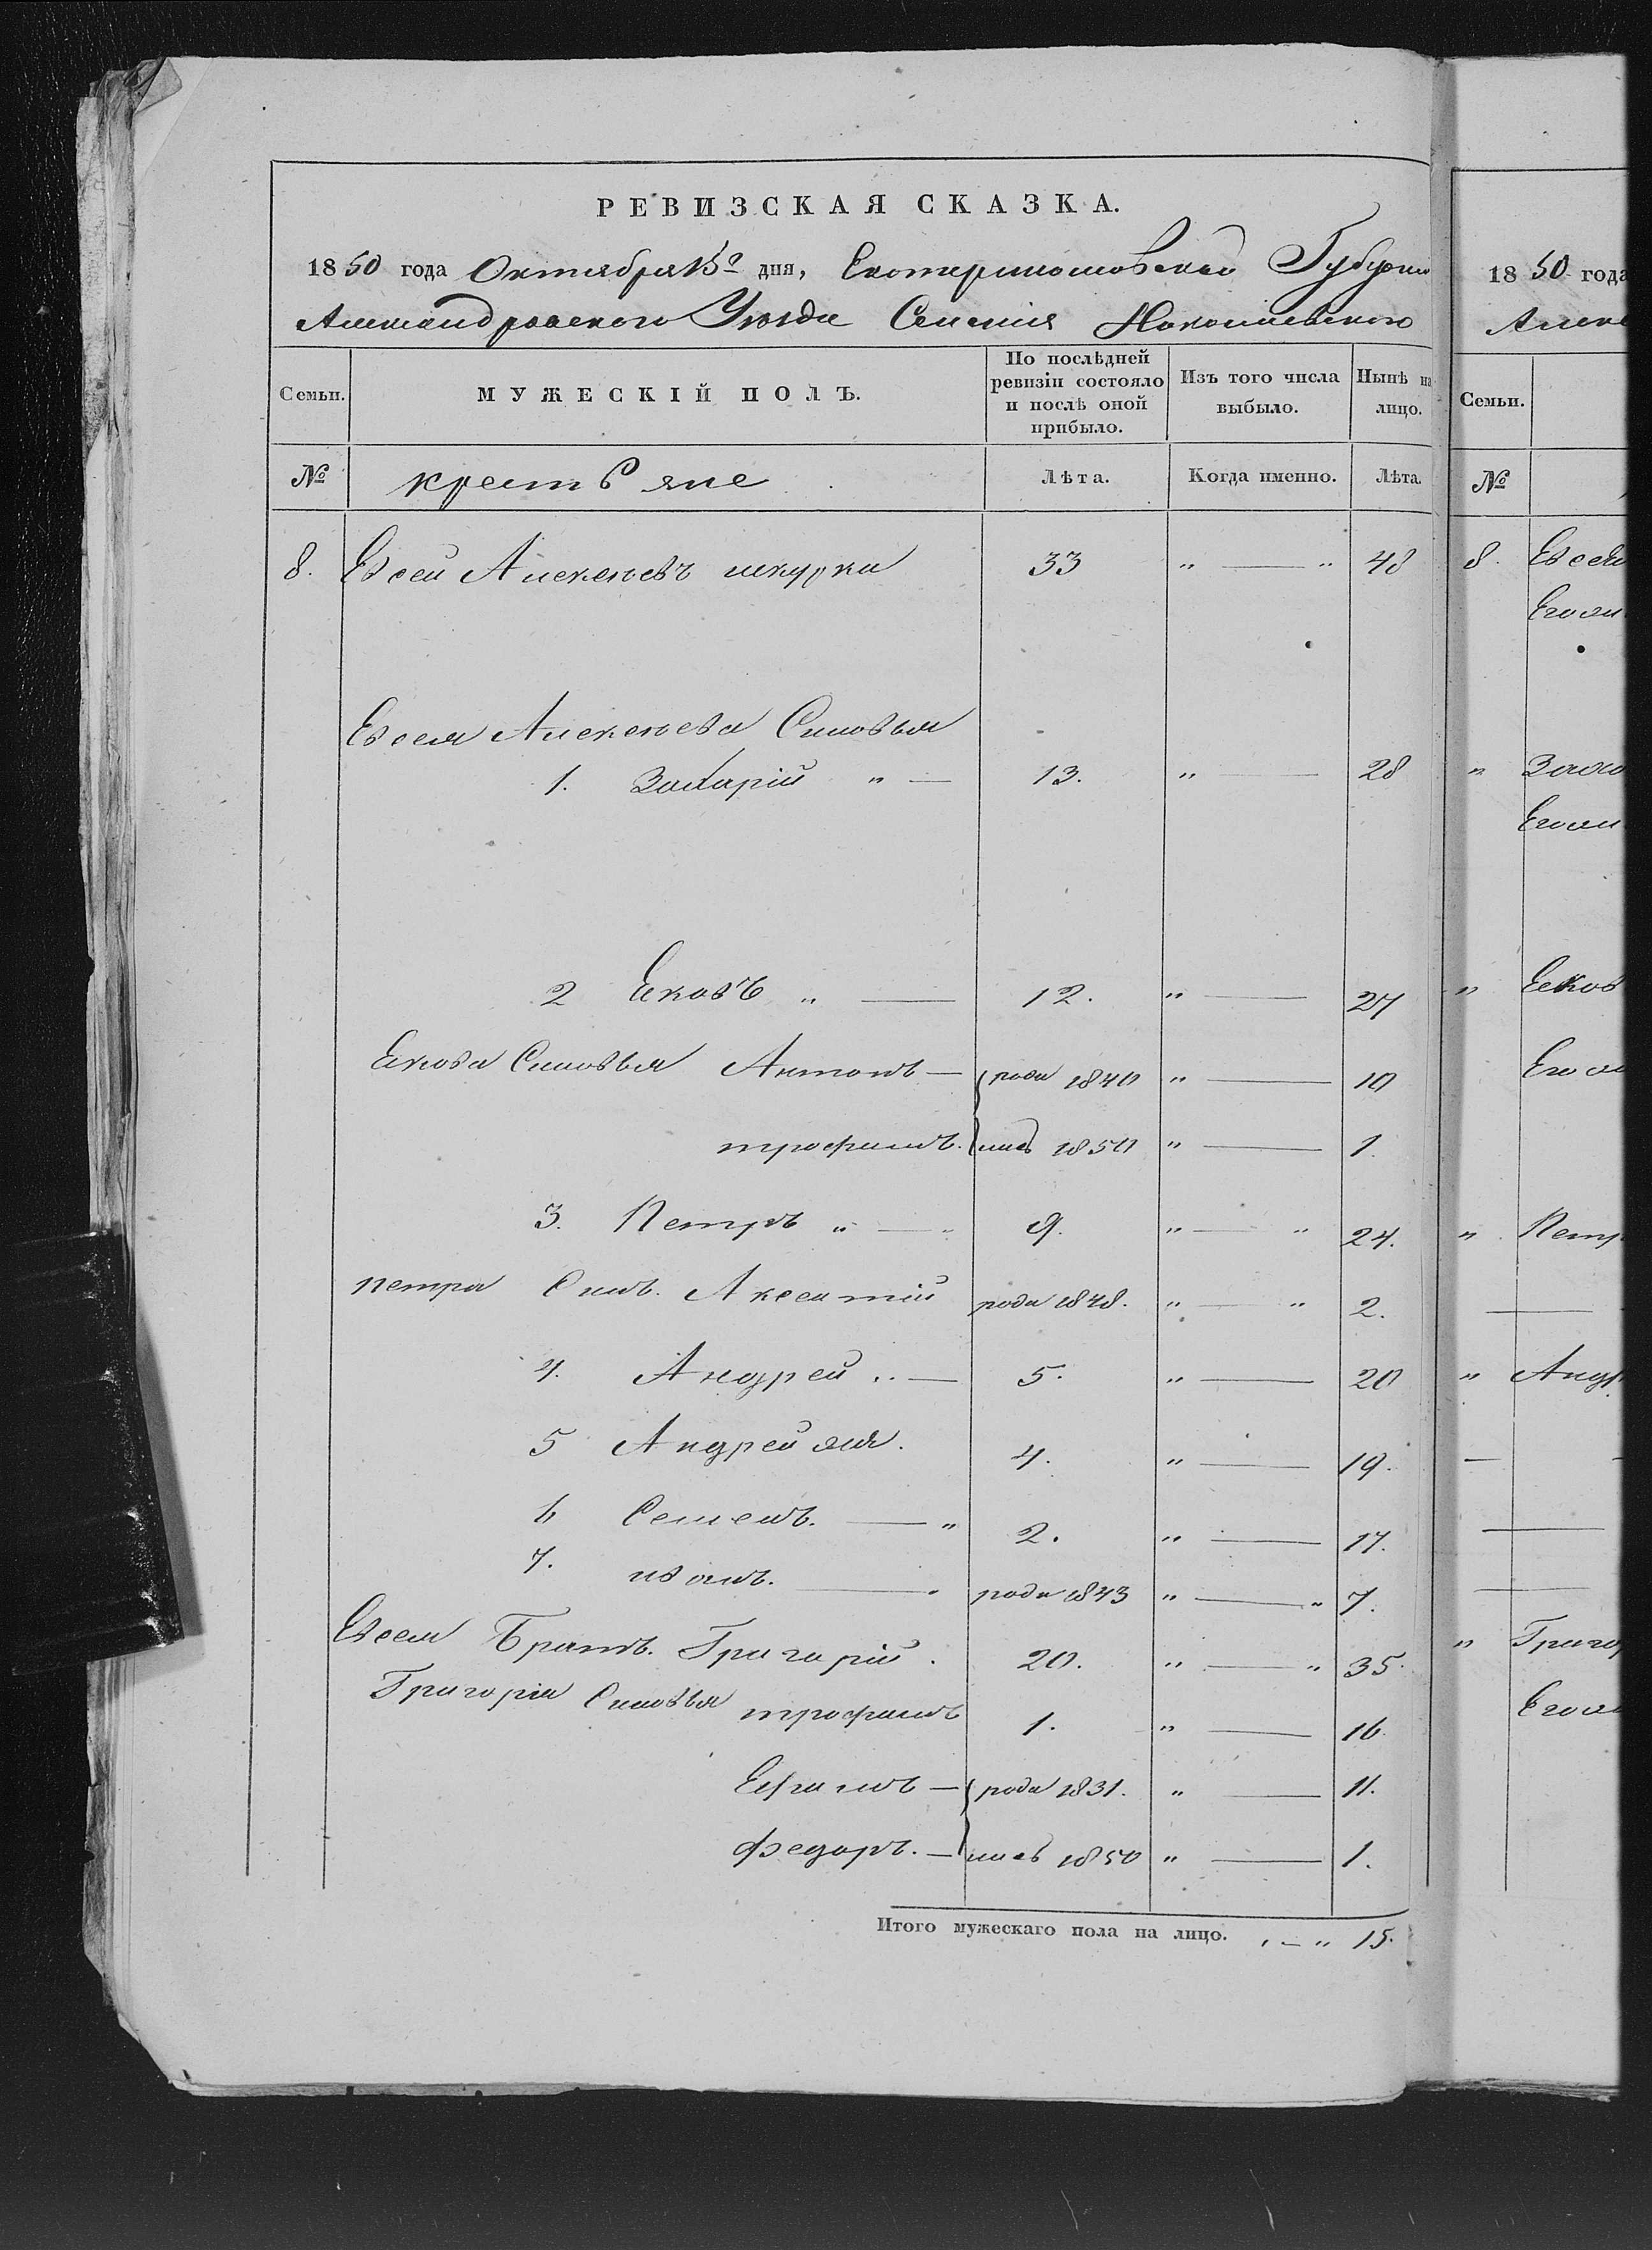 РЕВИЗСКАЯ СКАЗКА.
1850 года Октября 15го дня, Екатеринославской Губернии
Александровского Уезда Селения Николаевского
Семьи. МУЖЕСКІЙ ПОЛЪ. По послѣдней ревизіи состояло и послѣ оной прибыло. Изъ того числа выбыло. Нынѣ на лицо.
№ крестьяне Лѣта. Когда именно. Лѣта.
8. Евсей Алексеевъ шкурка 33 " — " 48
Евсея Алексеева Синовья
1. Захарій " — 13. " — 28
2 Ековъ " — 12. " — 27
Екова Синовья Антонъ — роди 1840 " — 10
трофимъ. лись 1850 " — 1.
3. Петръ " — 9. " — " 24.
петра Синъ. Аксентій роди 1848. " — " 2.
4. Андрей " — 5. " — 20
5 Андрей 4. " — 19.
6 Семенъ. — " 2. " — 17.
7. иванъ. — роди 1843 " — " 7.
Евсея Братъ. Григорій. 20. " — " 35.
Григорія Синовья трофимъ 1. " — 16.
Ефимъ — роди 1831. " — 11.
федоръ. — лись 1850 " — 1.
Итого мужескаго пола на лицо. " — " 15.
1850 года
Алекс
Семьи.
№
8. Евсея
Его
" Заха
Его
" Еков
Его
" Петр
" Андр
" Григор
Его